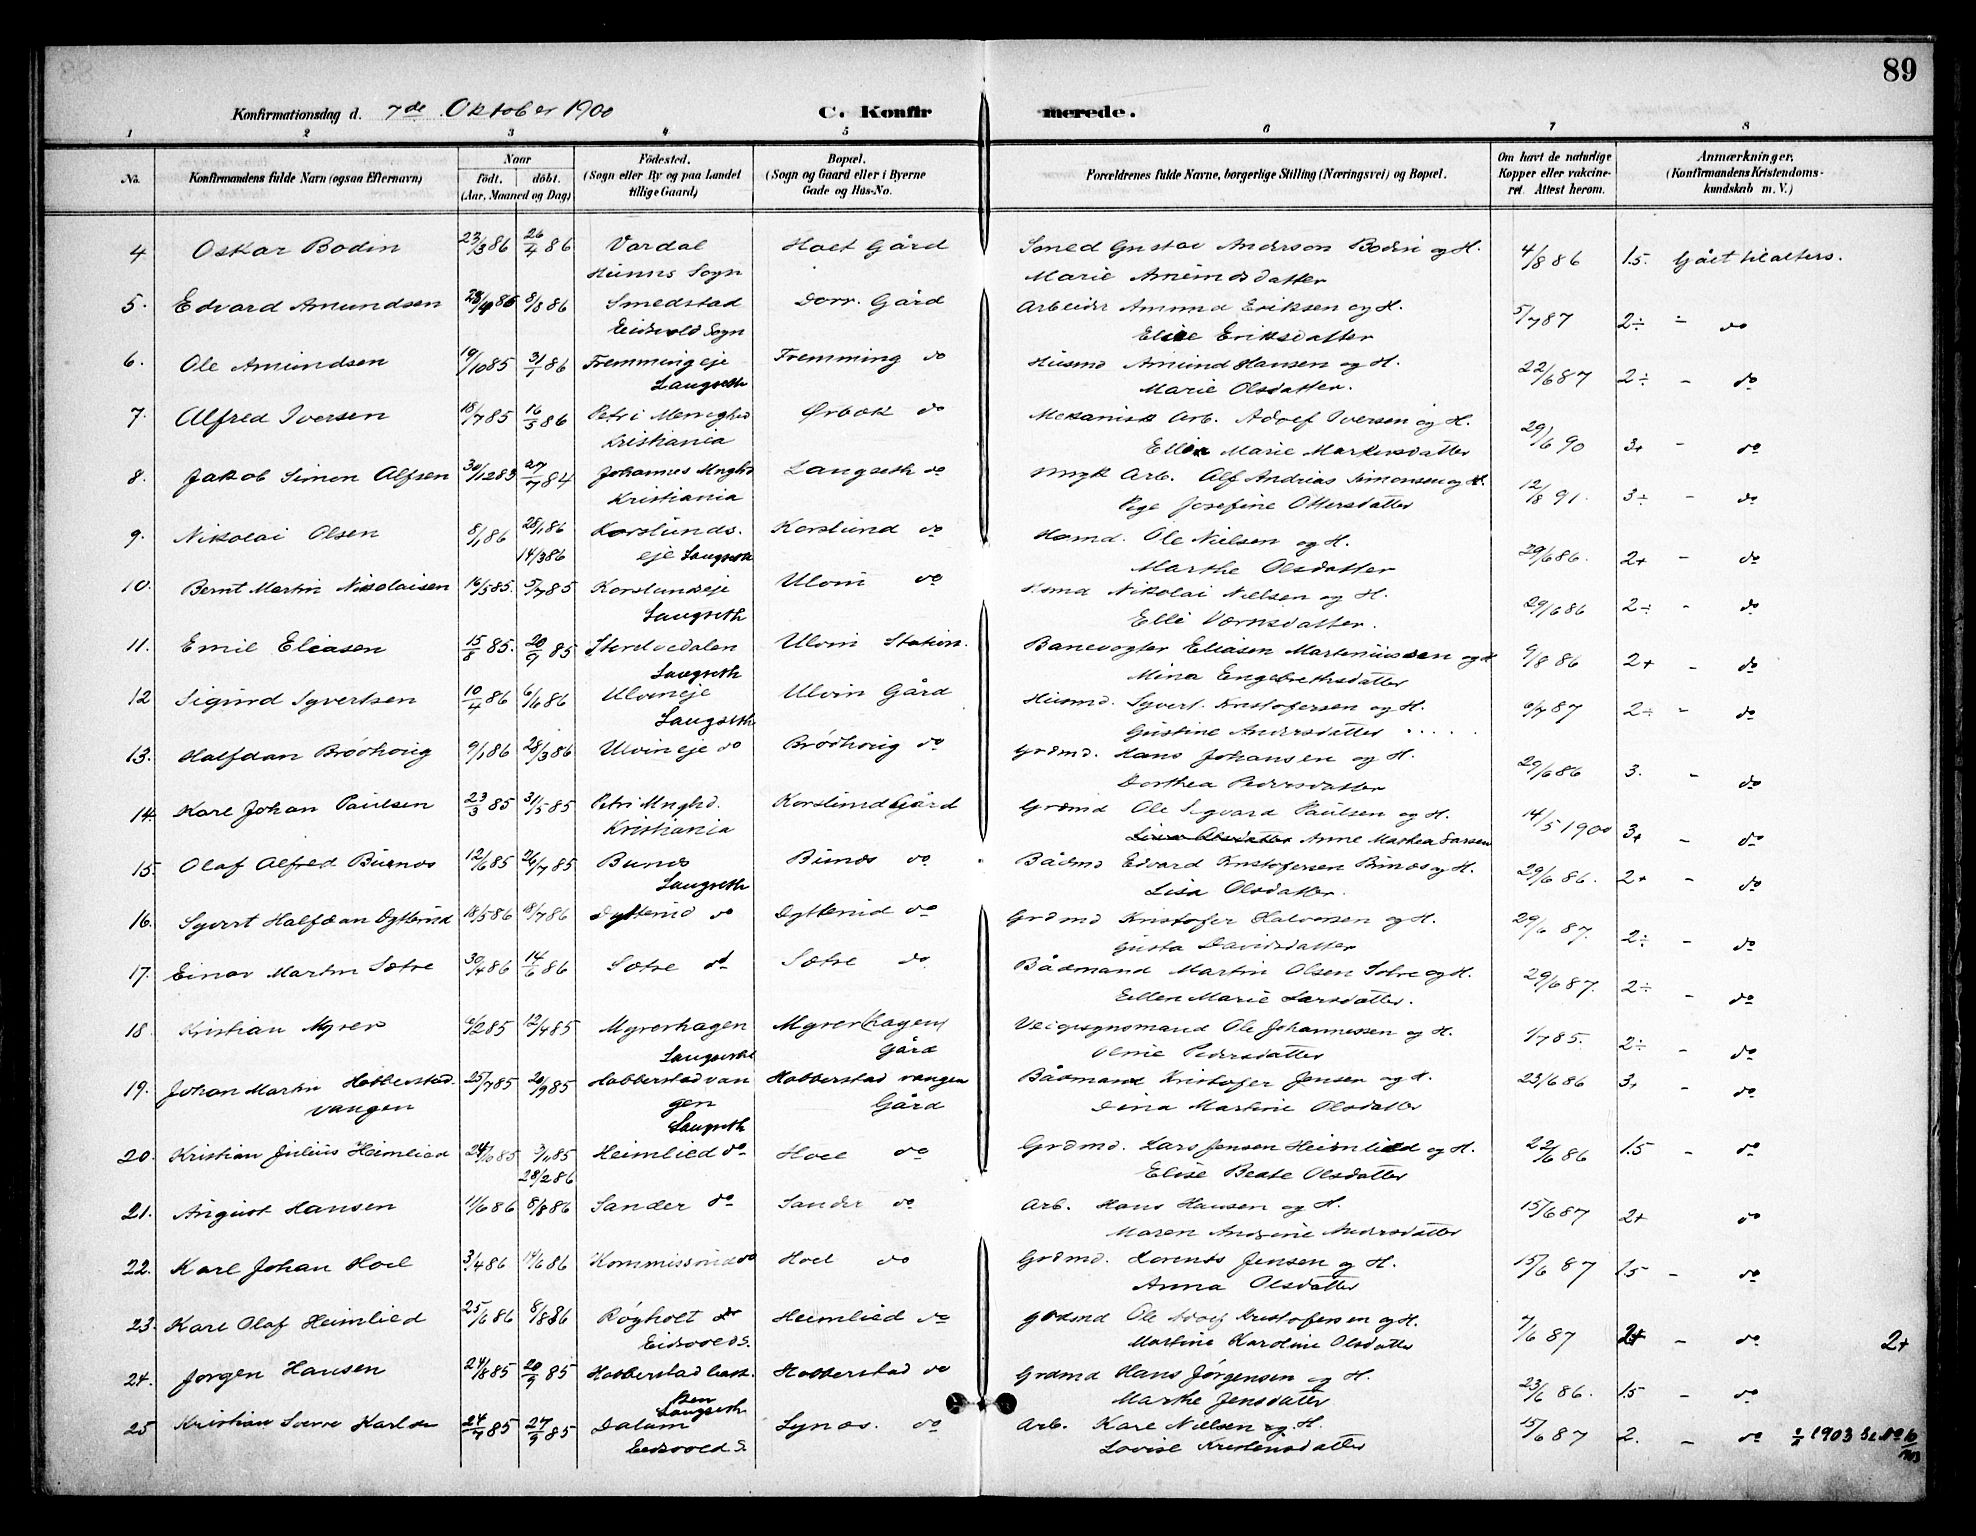 89
Konfirmationsdag d. 7de Oktober 1900 C. Konfirmerede.
1 2 3 4 5 6 7 8
No. Konfirmandens fulde Navn (ogsaa Efternavn) Naar födt. döbt. (Aar, Maaned og Dag) Födested. (Sogn eller By og paa Landet tillige Gaard) Bopæl. (Sogn og Gaard eller i Byerne Gade og Hus-No. Forældrenes fulde Navne, borgerlige Stilling (Næringsvei) og Bopæl. Om havt de naturlige Kopper eller vakcineret. Attest herom. Anmærkninger. (Konfirmandens Kristendomskundskab m. V.)
4 Oskar Bodin 23/3 86 26/4 86 Vardal Hoel Gård Smed Gustav Anderson Bodin og H. 4/8 86 1.5. Gået til alters.
Hunns Sogn Marie Amundsdatter
5. Edvard Amundsen 28/4 86 8/8 86 Smedstad Dorr. Gård Arbeider Amund Eriksen og H. 5/7 87 2÷ - do
Eidsvold Sogn Elise Eriksdatter
6. Ole Amundsen 19/10 85 31/1 86 Fremming eje Fremming do Husmd Amund Hansen og H. 22/6 87 2÷ - do
Langseth Marie Olsdatter.
7. Alfred Iversen 18/7 85 16/5 86 Petri Menighd Ørbæk do Mekanisk Arb. Adolf Iversen og H. 29/6 90 3+ - do
Kristiania Marie Markusdatter
8. Jakob Simon Alfsen 30/12 83 27/7 84 Johannes Mnghd Langseth do Arb. Alf Andrias Simonsen og H. 12/8 91. 3÷ - do
Kristiania Josefine Ottersdatter
9. Nikolai Olsen 8/1 86 28/1 86 Korslunds. Korslund do Hsmd. Ole Nielsen og H. 29/6 86. 2+ - do
14/3 86 eje Langseth Marthe Olsdatter
10. Bernt Martin Nikolaisen 16/5 85. 5/7 85 Korslundseje Ulvin do Hsmd Nikolai Nielsen og H. 29/6 86 2÷ - do
Langseth Elli
11. Emil Eliasen 15/8 85. 20/9 85 Ulvin Station. Banevogter Eliasen Martinussen og H 9/8 86 2+ - do
Langseth Mina Engebrethsdatter
12 Sigurd Syvertsen 10/4 86 6/6 86 Ulvineje Ulvin Gård Husmd. Syvert Kristofersen og H. 6/7 87 2÷ - do
Langseth Gustine Andersdatter
13. Halfdan Brödhoug 9/1 86 28/3 86 Ulvin eje do Brödhoug do Grdmd. Hans Johansen og H. 29/6 86 3. - do
Dorthea Pedersdatter
14. Karl Johan Paulsen 23/3 85 31/5 85 Petri Mnghd. Korslund Gård Grdmd Ole Sigvard Paulsen og H. 14/5 1900 3+ - do
Kristiania Anne Mathea Larsen
15. Olaf Alfred Bunæs 12/6 85 26/7 85 Bunæs Bunæs do Bådmd Edvard Kristofersen Bunæs og H. 29/6 86. 2+ - do
Langseth Lisa Olsdatter.
16. Syvert Halfdan Dytterud 18/5 86 18/7 86 Dytterud do Dytterud do Grdmd Kristofer Halvorsen og H. 29/6 87. 2÷ - do
Gusta Davidsdatter
17. Einar Martin Sætre 30/4 86 14/6 86 Sætre do Sætre do Bådmand Martin Olsen Sætre og H. 29/6 87. 2÷ - do
Ellen Marie Larsdatter.
18. Kristian Myrer 6/2 85 12/4 85 Myrerhagen Myrer(hagen) Veigsynsmand Ole Johannessen og H. 1/7 85. 2÷ - do
Langseth Gård Oline Pedersdatter
19. Johan Martin Hobberstad- 25/7 85 20/9 85 Hobberstadvan Hobberstad vangen Bådmand Kristofer Jensen og H. 23/6 86 3+ - do
vangen gen Gård Dina Martine Olsdatter
Langseth
20. Kristian Julius Heimlied 24/ 85 3/ 85 Heimlied do Hoel do Grdmd. Lars Jensen Heimlied og H. 22/6 86 1.5 - do
28/2 86 Elise Beate Olsdatter
21. August Hansen 1/6 86 8/8 86 Sander do Sander do Arb. Hans Hansen og H. 15/6 87 2+ do
Maren Andrine Andersdatter
22. Karl Johan Hoel 3/4 86 14/6 86 Kommissrud do Hoel do Grdmd. Lorents Jensen og H. 15/6 87 1.5 - do
Anna Olsdatter
23. Karl Olaf Heimlied 25/6 86 8/8 86 Røgholt do Heimlied do Grdmd Ole Adolf Kristofersen og H. 7/6 87 2+ - do 2+
Eidsvold S. Martine Karoline Olsdatter
24. Jørgen Hansen 24/8 85 20/9 85 Hobberstad bak- Hobberstad do Grdmd Hans Jørgensen og H. 23/6 86. 1.5 - do
ken Langseth Marthe Jensdatter
25 Kristian Sverre Karlsen 24/7 85 27/9 85 Dalum Synæs. do Arb. Karl Nielsen og H. 15/6 87 2. - do 1903 Se No 10/1903
Eidsvold S. Lovise Kristensdatter